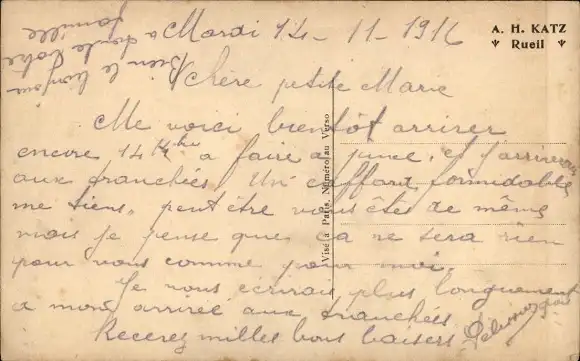 Mardi 14-11-1916
A. H. KATZ
Rueil
Chère petite Marie
Me voici bientôt arriver
encore 14 à faire a et j'arriverai
aux tranchées. Un caffard formidable
me tiens, peut être vous êtes de même
mais je pense que ça ne sera rien
pour vous comme pour moi.
Je vous ecrirais plus longuement
a mon arrivée aux tranchées
Recevez milles bons baisers
Bien le bonjour
a toute votre
famille
Visé à Paris, Numéro au Verso